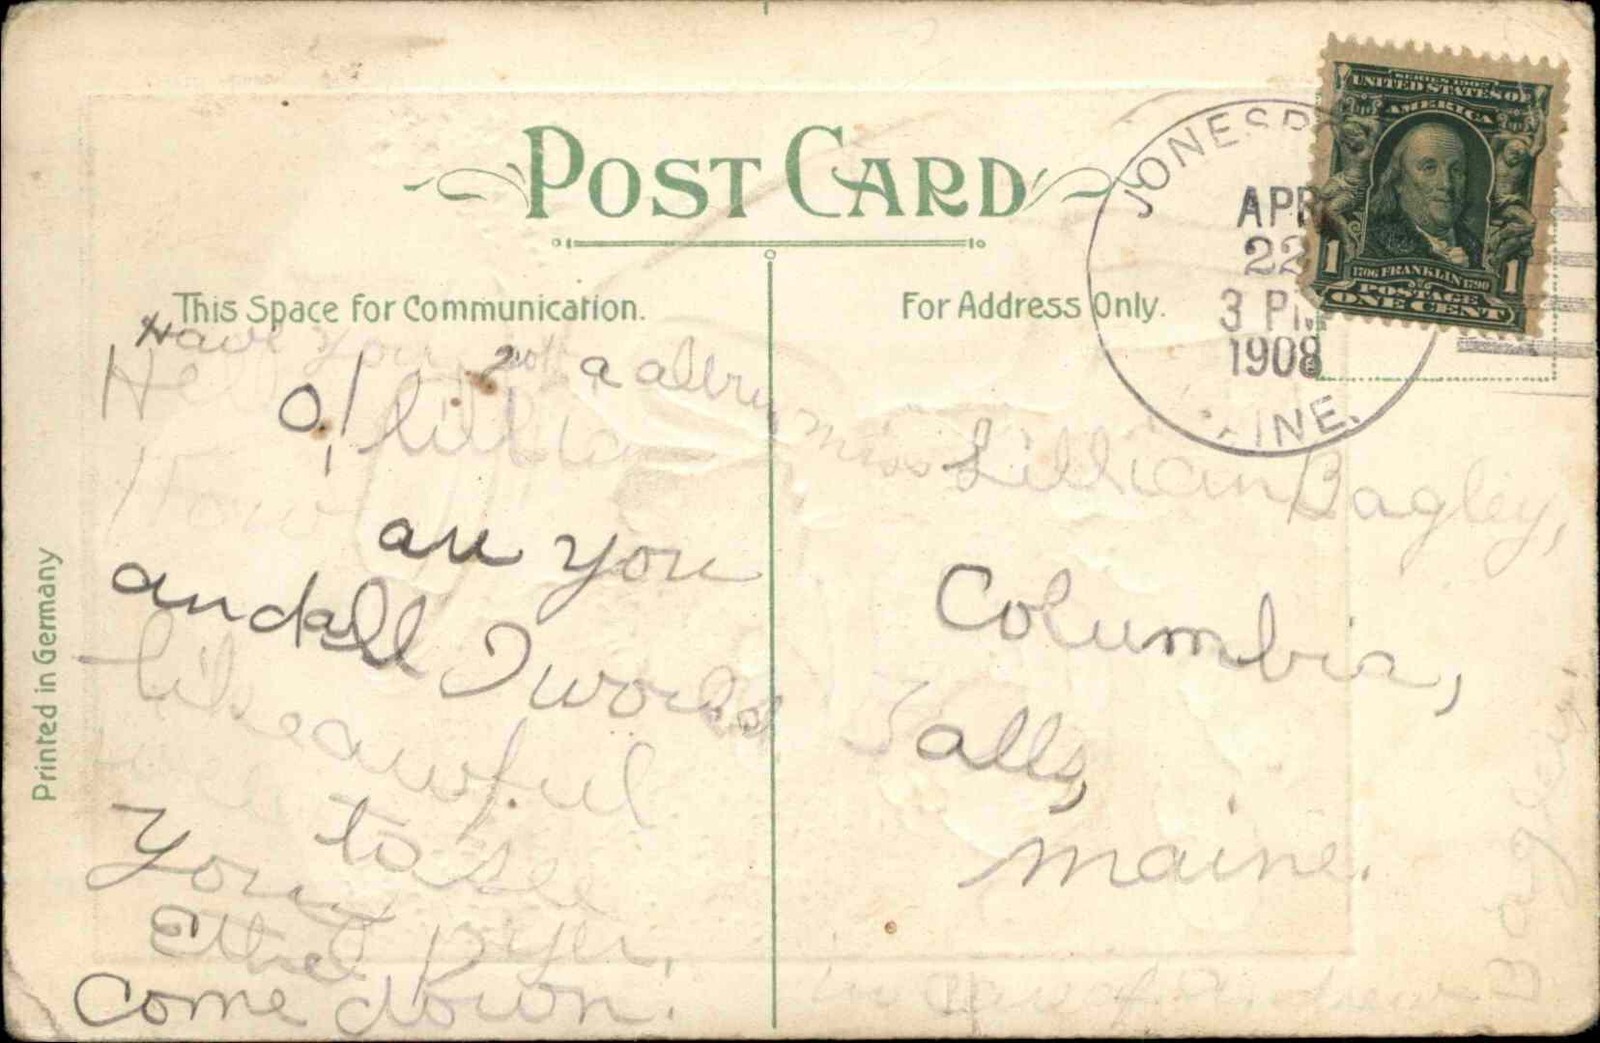 POST CARD
This Space for Communication.
For Address Only.
Printed in Germany
JONESP
APR
22
3 PM
1908
INE.
SERIES 1902
UNITED STATES OF
AMERICA
1706 FRANKLIN 1790
POSTAGE
1 ONE CENT 1
Have you a
Hell
O! Lillian
How
are you
and all I would
like awful
well
to see
you
Ethel
Come down.
Miss Lillian Bagley,
Columbia,
Falls,
Maine.
in Care of Andrew
Bagley.